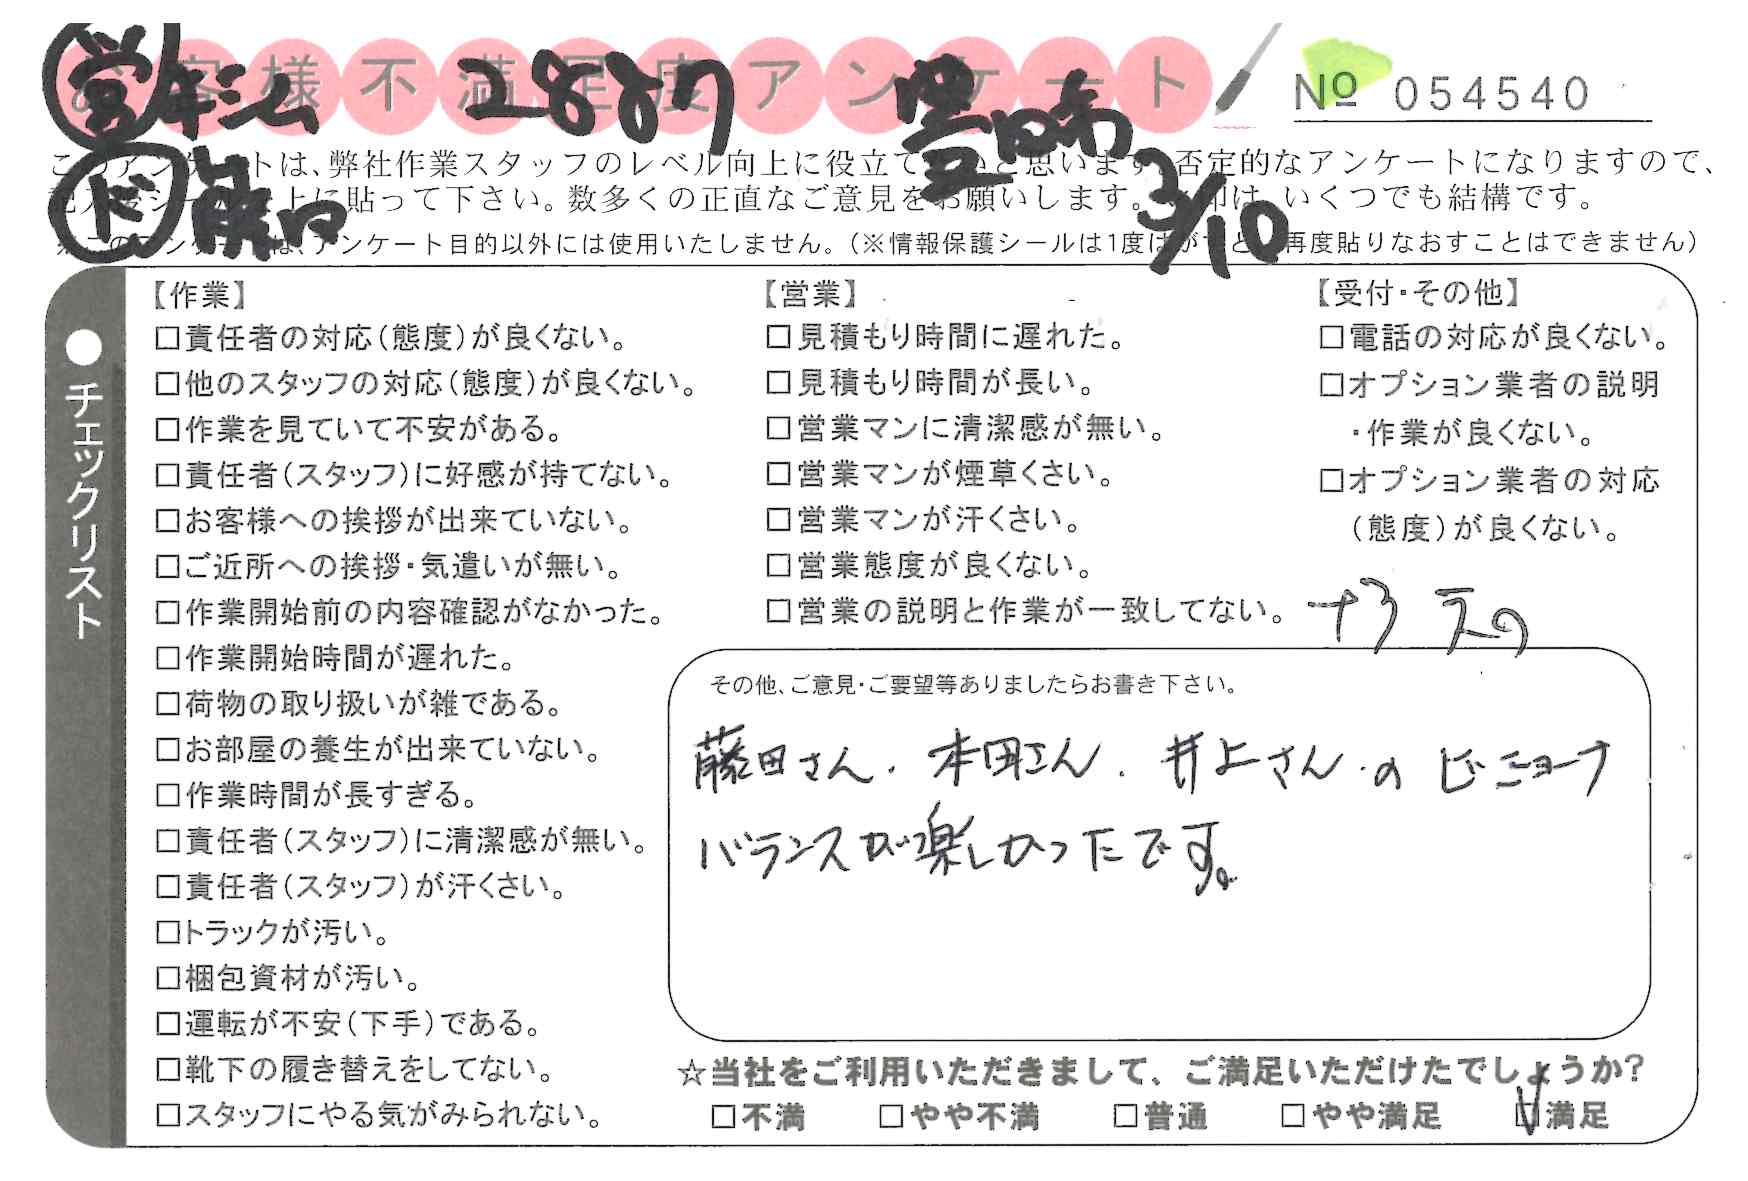 お客様不満足度アンケート
2887
3/10
№ 054540
このアンケートは、弊社作業スタッフのレベル向上に役立て と思います。否定的なアンケートになりますので、
上に貼って下さい。数多くの正直なご意見をお願いします。 は、いくつでも結構です。
※このアンケートは、アンケート目的以外には使用いたしません。(※情報保護シールは1度はがすと、再度貼りなおすことはできません)
●チェックリスト
【作業】
□責任者の対応(態度)が良くない。
□他のスタッフの対応(態度)が良くない。
□作業を見ていて不安がある。
□責任者(スタッフ)に好感が持てない。
□お客様への挨拶が出来ていない。
□ご近所への挨拶・気遣いが無い。
□作業開始前の内容確認がなかった。
□作業開始時間が遅れた。
□荷物の取り扱いが雑である。
□お部屋の養生が出来ていない。
□作業時間が長すぎる。
□責任者(スタッフ)に清潔感が無い。
□責任者(スタッフ)が汗くさい。
□トラックが汚い。
□梱包資材が汚い。
□運転が不安(下手)である。
□靴下の履き替えをしてない。
□スタッフにやる気がみられない。
【営業】
□見積もり時間に遅れた。
□見積もり時間が長い。
□営業マンに清潔感が無い。
□営業マンが煙草くさい。
□営業マンが汗くさい。
□営業態度が良くない。
□営業の説明と作業が一致してない。
【受付・その他】
□電話の対応が良くない。
□オプション業者の説明
・作業が良くない。
□オプション業者の対応
(態度)が良くない。
その他、ご意見・ご要望等ありましたらお書き下さい。
藤田さん、本田さん、井上さん、のビミョーナ
バランスが楽しかったです。
☆当社をご利用いただきまして、ご満足いただけたでしょうか?
□不満 □やや不満 □普通 □やや満足 □満足